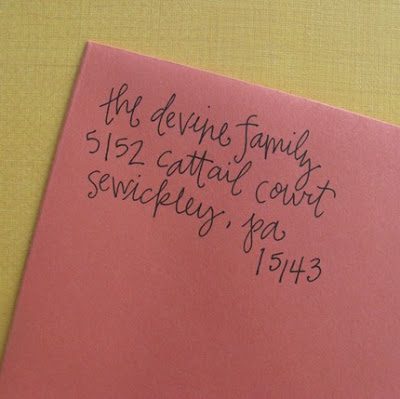 the devine family
5152 cattail court
sewickley, pa
15143